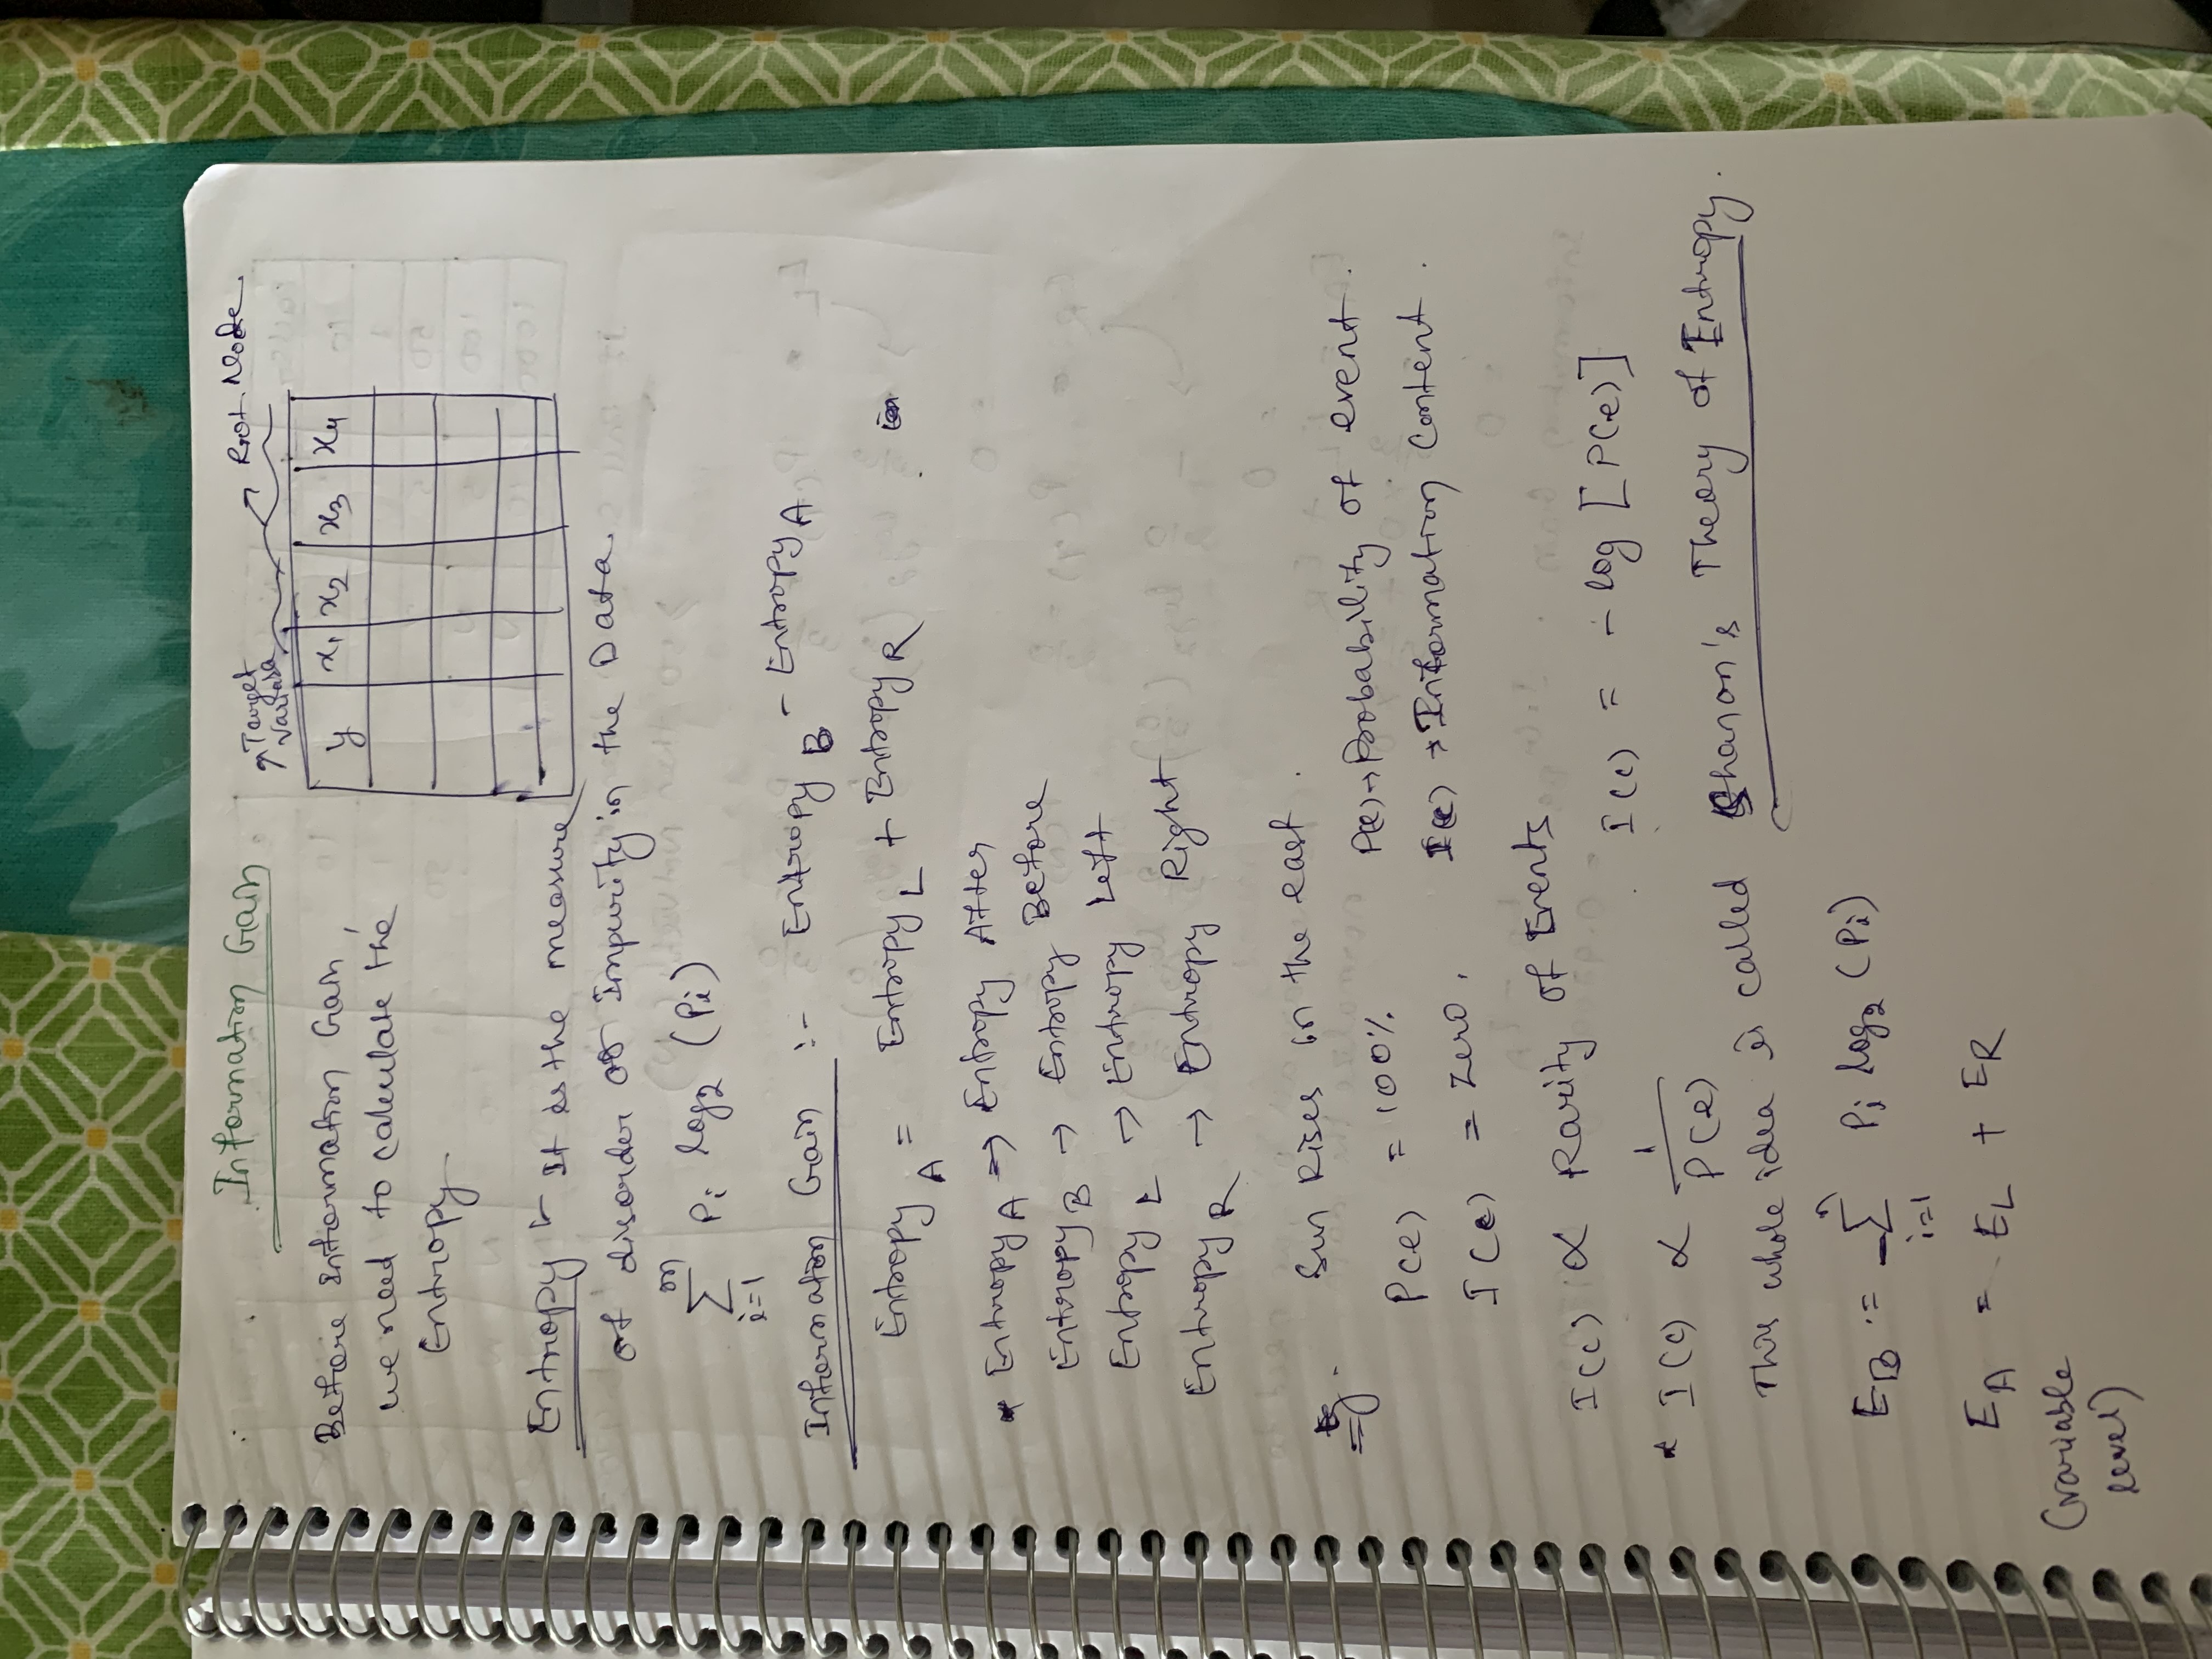 Information Gain
Target Variable
Root Node
Before Information Gain,
we need to calculate the
Entropy
y x₁ x₂ x₃ x₄
Entropy :- It is the measure
of disorder or Impurity in the Data.
∑ᵢ₌₁ⁿ Pᵢ log₂ (Pᵢ)
Information Gain :- Entropy_B - Entropy_A
Entropy_A = Entropy_L + Entropy_R
* Entropy_A → Entropy After
Entropy_B → Entropy Before
Entropy_L → Entropy Left
Entropy_R → Entropy Right
Eg. Sun Rises in the east.
P(e) = 100% P(e) → Probability of event.
I(e) = Zero. I(e) → Information Content.
I(c) ∝ Rarity of Events
I(c) = - log [P(e)]
* I(c) ∝ 1/P(e)
This whole idea is called Shanon's Theory of Entropy.
E_B := -∑ᵢ₌₁ⁿ Pᵢ log₂ (Pᵢ)
E_A = E_L + E_R
(variable
level)